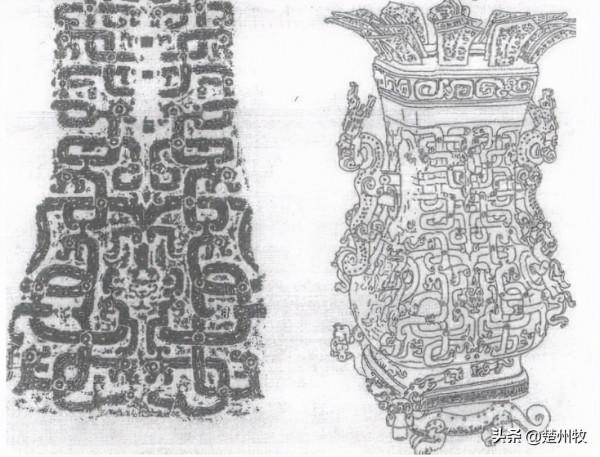 头条 @楚州牧